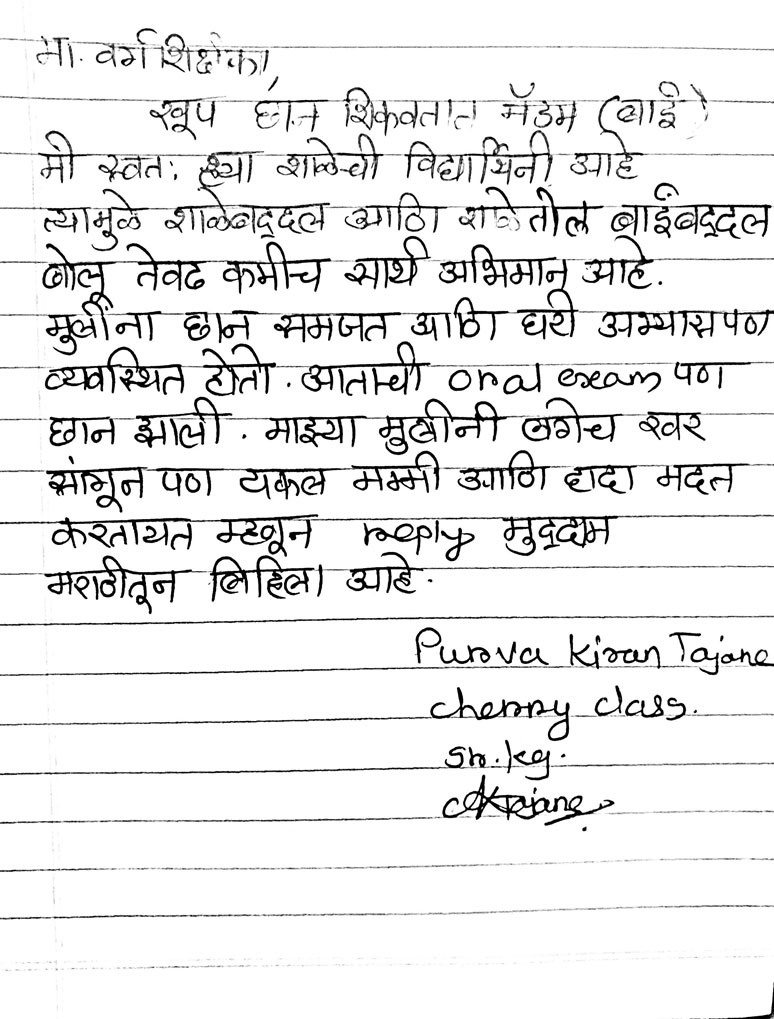 मा. वर्ग शिक्षिका,
खूप छान शिकवतात मॅडम (बाई)
मी स्वत: ह्या शाळेची विद्यार्थिनी आहे
त्यामुळे शाळेबद्दल आणि शाळेतील बाईंबद्दल
बोलू तेवढ कमीच सार्थ अभिमान आहे.
मुलींना छान समजत आणि घरी अभ्यास पण
व्यवस्थित होतो. आताची oral exam पण
छान झाली. माझ्या मुलीनी लगेच
सांगून पण टाकल मम्मी आणि दादा मदत
करतायत म्हणून reply मुद्दाम
मराठीतून लिहिला आहे.
Purva Kiran Tajane
cherry class.
Sr. kg.